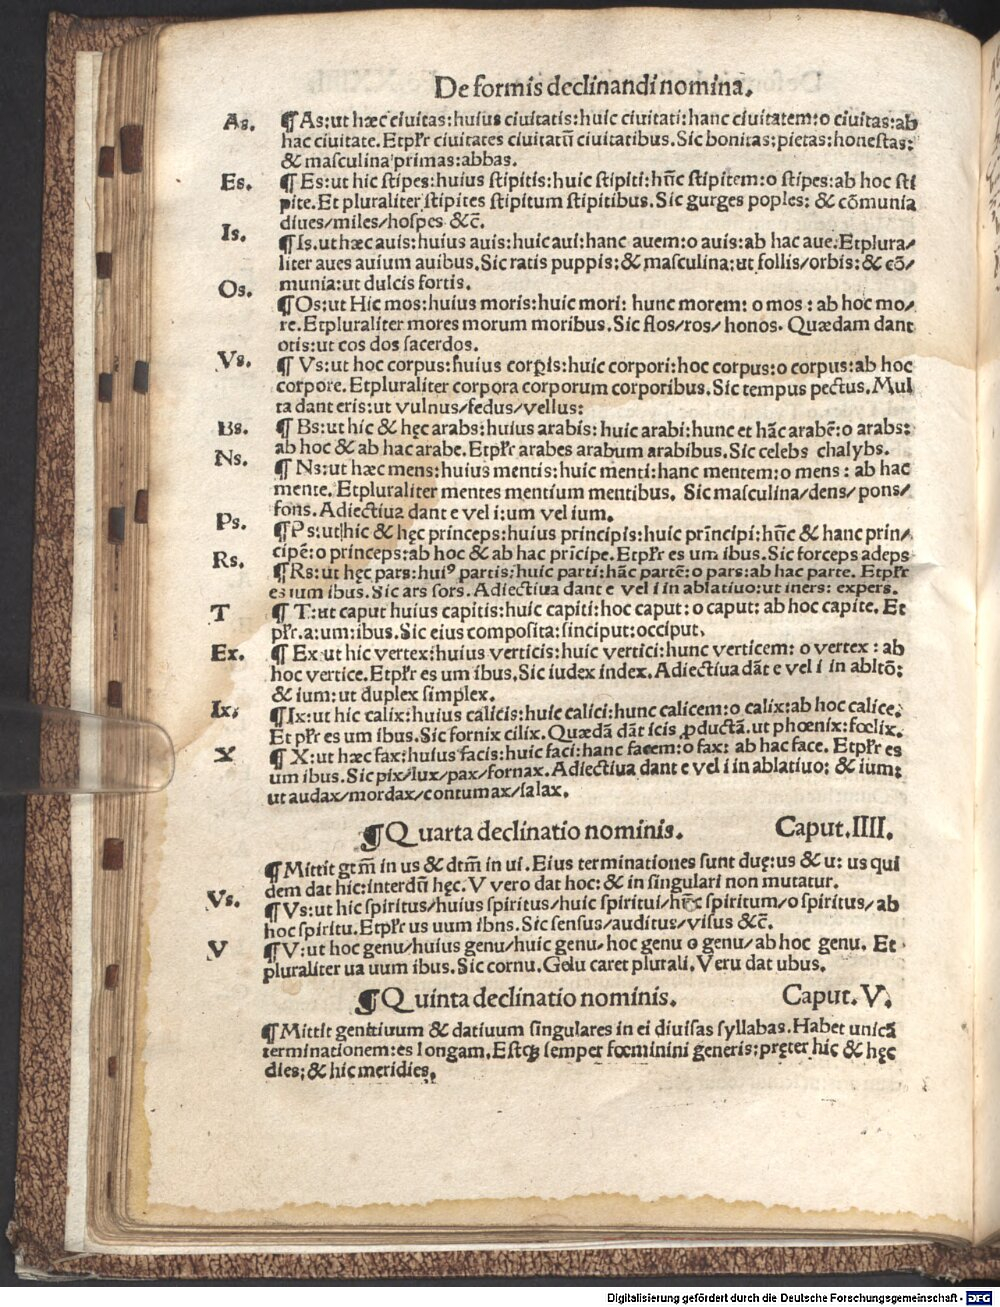 De formis declinandi nomina.
As. ¶ As:ut hæc ciuitas:huius ciuitatis:huic ciuitati:hanc ciuitatem:o ciuitas:ab
hac ciuitate. Etpl̄r ciuitates ciuitatū ciuitatibus. Sic bonitas:pietas:honestas:
& masculina primas:abbas.
Es. ¶ Es:ut hic stipes:huius stipitis:huic stipiti:hūc stipitem:o stipes:ab hoc sti
pite. Et pluraliter stipites stipitum stipitibus. Sic gurges poples: & cōmunia
diues/miles/hospes &c̄.
Is. ¶ Is.ut hæc auis:huius auis:huic aui:hanc auem:o auis:ab hac aue. Etplura/
liter aues auium auibus. Sic ratis puppis:& masculina:ut follis/orbis:& cō/
munia:ut dulcis fortis.
Os. ¶ Os:ut Hic mos:huius moris:huic mori: hunc morem: o mos : ab hoc mo/
re. Etpluraliter mores morum moribus. Sic flos/ros/ honos. Quædam dant
otis:ut cos dos sacerdos.
Vs. ¶ Vs:ut hoc corpus:huius corꝑis:huic corpori:hoc corpus:o corpus:ab hoc
corpore. Etpluraliter corpora corporum corporibus. Sic tempus pectus. Mul
ta dant eris:ut vulnus/fedus/vellus:
Bs. ¶ Bs:ut hic & hęc arabs:huius arabis: huic arabi:hunc et hāc arabē:o arabs:
ab hoc & ab hac arabe. Etpl̄r arabes arabum arabibus. Sic celebs chalybs.
Ns. ¶ Ns:ut hæc mens:huius mentis:huic menti:hanc mentem:o mens : ab hac
mente. Etpluraliter mentes mentium mentibus. Sic masculina/dens/pons/
fons. Adiectiua dant e vel i:um vel ium.
Ps. ¶ Ps:ut hic & hęc princeps:huius principis:huic prīncipi:hūc & hanc prin/
cipē:o princeps:ab hoc & ab hac prīcipe. Etpl̄r es um ibus. Sic forceps adeps
Rs. ¶ Rs: ut hęc pars:huiꝰ partis:huic parti:hāc partē:o pars:ab hac parte. Etpl̄r
es ium ibus. Sic ars sors. Adiectiua dant e vel i in ablatiuo:ut iners: expers.
T ¶ T:ut caput huius capitis:huic capiti:hoc caput: o caput: ab hoc capite. Et
pl̄r.a:um:ibus. Sic eius composita:sinciput:occiput.
Ex. ¶ Ex:ut hic vertex:huius verticis:huic vertici:hunc verticem: o vertex : ab
hoc vertice. Etpl̄r es um ibus. Sic iudex index. Adiectiua dāt e vel i in abltō:
& ium:ut duplex simplex.
Ix. ¶ Ix:ut hic calix:huius calicis:huic calici:hunc calicem:o calix:ab hoc calice.
Et pl̄r es um ibus. Sic fornix cilix. Quædā dāt icis ꝓductā.ut phœnix:fœlix.
X ¶ X:ut hæc fax:huius facis:huic faci:hanc facem:o fax: ab hac face. Etpl̄r es
um ibus. Sic pix/lux/pax/fornax. Adiectiua dant e vel i in ablatiuo: & ium:
ut audax/mordax/contumax/salax.
¶ Quarta declinatio nominis. Caput.IIII.
¶ Mittit gtm̄ in us & dtm̄ in ui. Eius terminationes sunt duę:us & u: us qui
dem dat hic:interdū hęc. V vero dat hoc: & in singulari non mutatur.
Vs. ¶ Vs:ut hic spiritus/huius spiritus/huic spiritui/hūc spiritum/o spiritus/ab
hoc spiritu. Etpl̄r us uum ibns. Sic sensus/auditus/visus &c̄.
V ¶ V:ut hoc genu/huius genu/huic genu/hoc genu o genu/ab hoc genu. Et
pluraliter ua uum ibus. Sic cornu. Gelu caret plurali. Veru dat ubus.
¶ Quinta declinatio nominis. Caput.V.
¶ Mittit genitiuum & datiuum singulares in ei diuisas syllabas. Habet unicā
terminationem:es longam. Estꝙ semper fœminini generis:pręter hic & hęc
dies:& hic meridies.
Digitalisierung gefördert durch die Deutsche Forschungsgemeinschaft - DFG